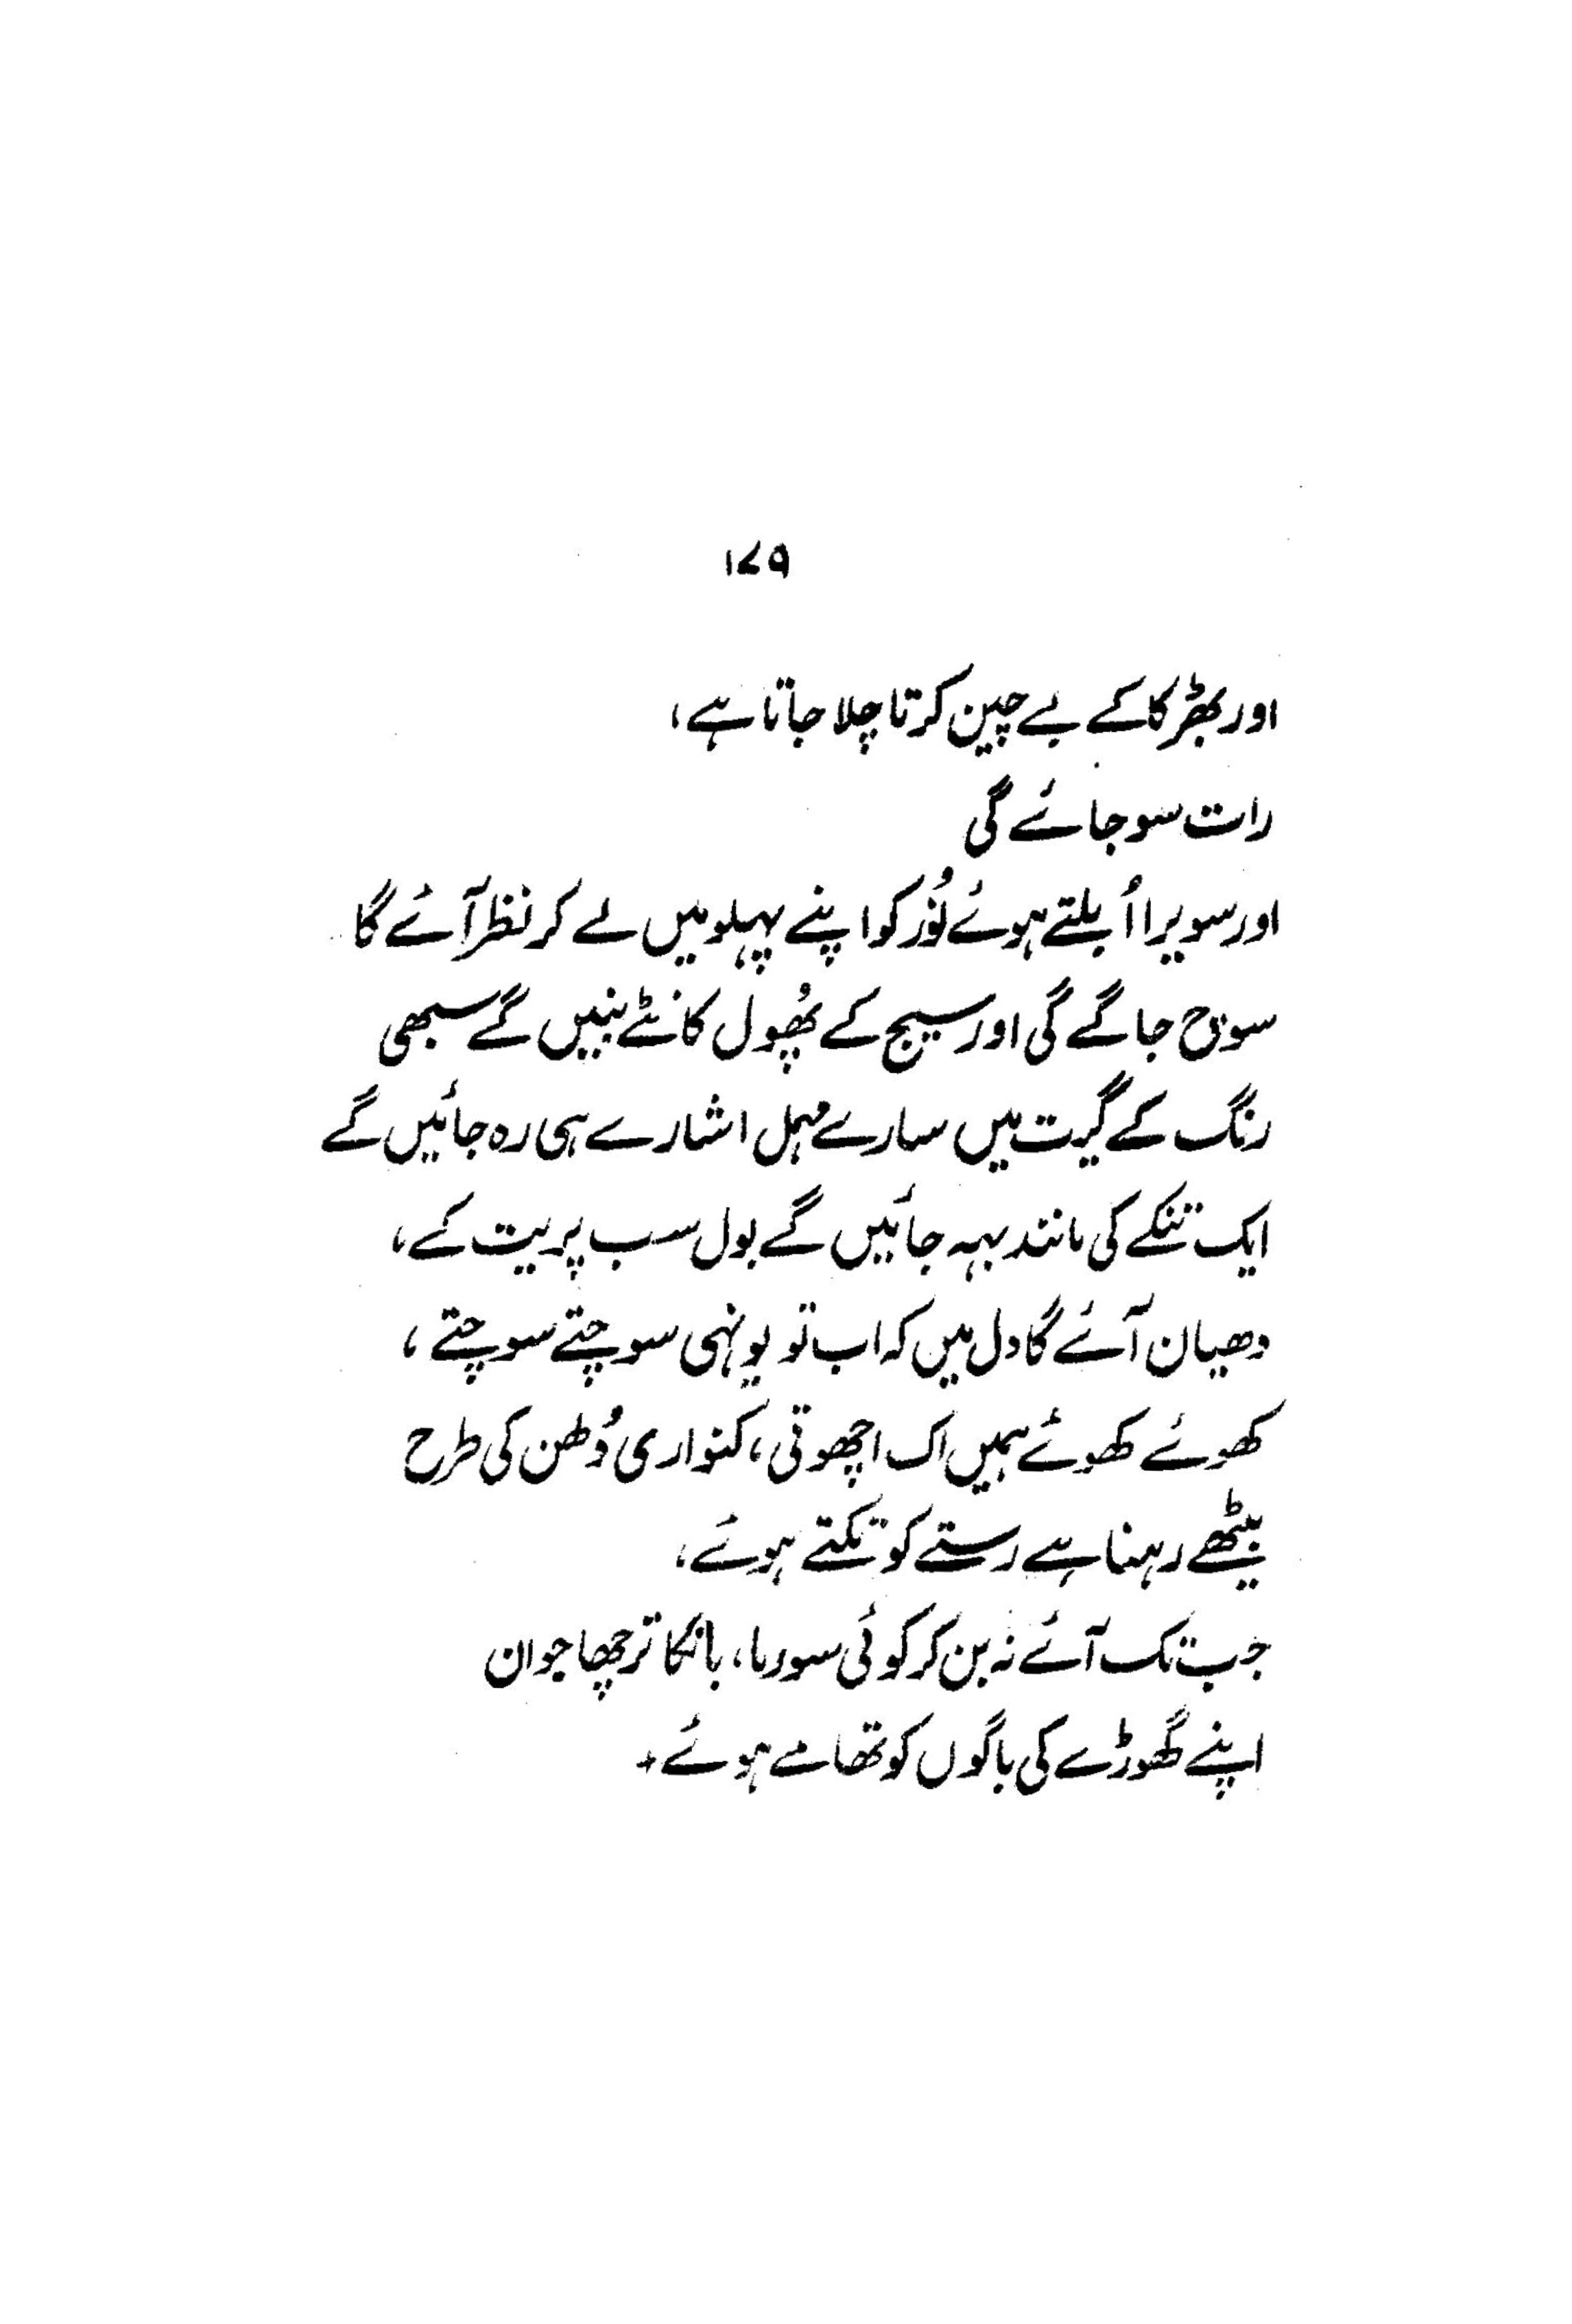 ۱۷۹
اور بھڑکا کے بے چین کرتا چلا جاتا ہے،
رات سو جائے گی
اور سویرا اُبلتے ہوئے نُور کو اپنے پہلو میں لے کر نظر آئے گا
سوچ جاگے گی اور سیج کے پُھول کانٹے بنیں گے سبھی
رنگ کے گیت میں سارے مہمل اشارے ہی رہ جائیں گے
ایک تنکے کی مانند بہہ جائیں گے بول سب پریت کے،
دھیان آئے گا دل میں کہ اب تو یونہی سوچتے سوچتے،
کھوئے کھوئے ہمیں اک اچھوتی، کنواری دُلھن کی طرح
بیٹھے رہنا ہے رستے کو تکتے ہوئے،
جب تک آئے نہ بن کر کوئی سورما، بانکا ترچھا جوان
اپنے گھوڑے کی باگوں کو تھامے ہوئے۔